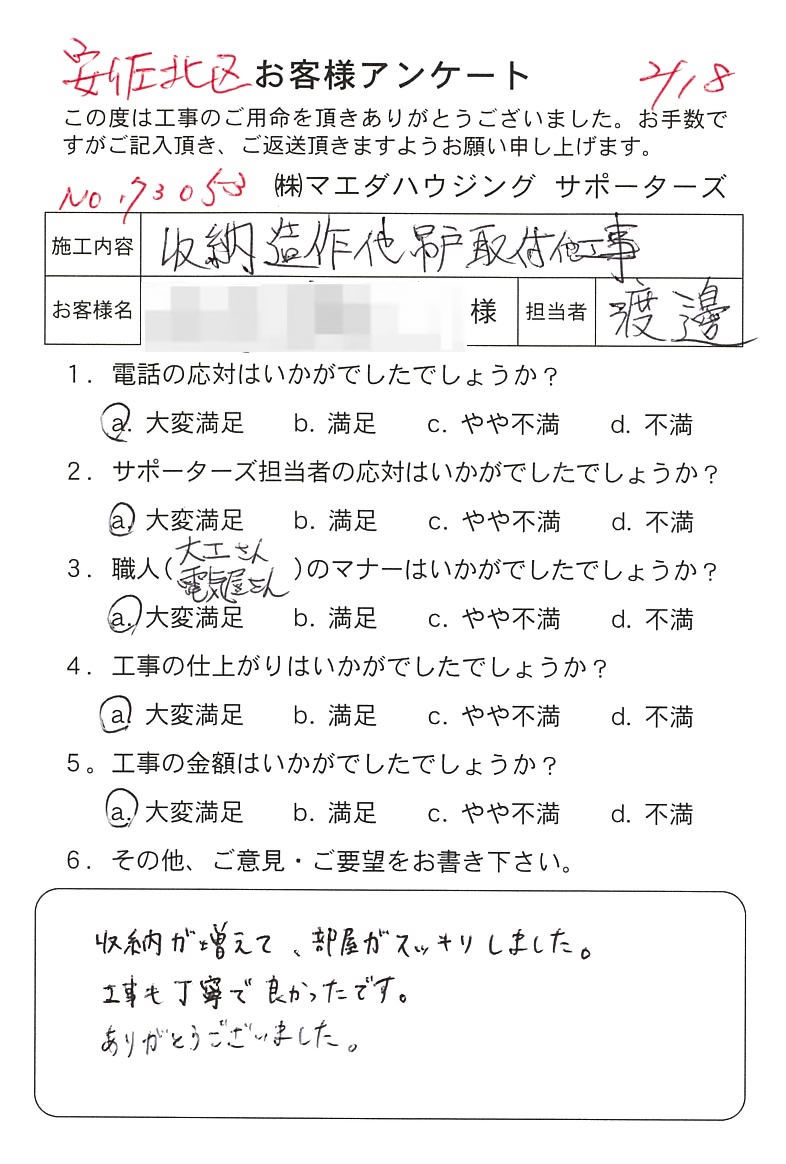 安佐北区 お客様アンケート 2/18
この度は工事のご用命を頂きありがとうございました。お手数で
すがご記入頂き、ご返送頂きますようお願い申し上げます。
No.73053 ㈱マエダハウジング サポーターズ
施工内容 収納造作他吊戸取付他工事
お客様名 様 担当者 渡邊
1. 電話の応対はいかがでしたでしょうか?
a. 大変満足 b. 満足 c. やや不満 d. 不満
2. サポーターズ担当者の応対はいかがでしたでしょうか?
a. 大変満足 b. 満足 c. やや不満 d. 不満
3. 職人(大工さん 電気屋さん)のマナーはいかがでしたでしょうか?
a. 大変満足 b. 満足 c. やや不満 d. 不満
4. 工事の仕上がりはいかがでしたでしょうか?
a. 大変満足 b. 満足 c. やや不満 d. 不満
5。工事の金額はいかがでしたでしょうか?
a. 大変満足 b. 満足 c. やや不満 d. 不満
6. その他、ご意見・ご要望をお書き下さい。
収納が増えて、部屋がスッキリしました。
工事も丁寧で良かったです。
ありがとうございました。